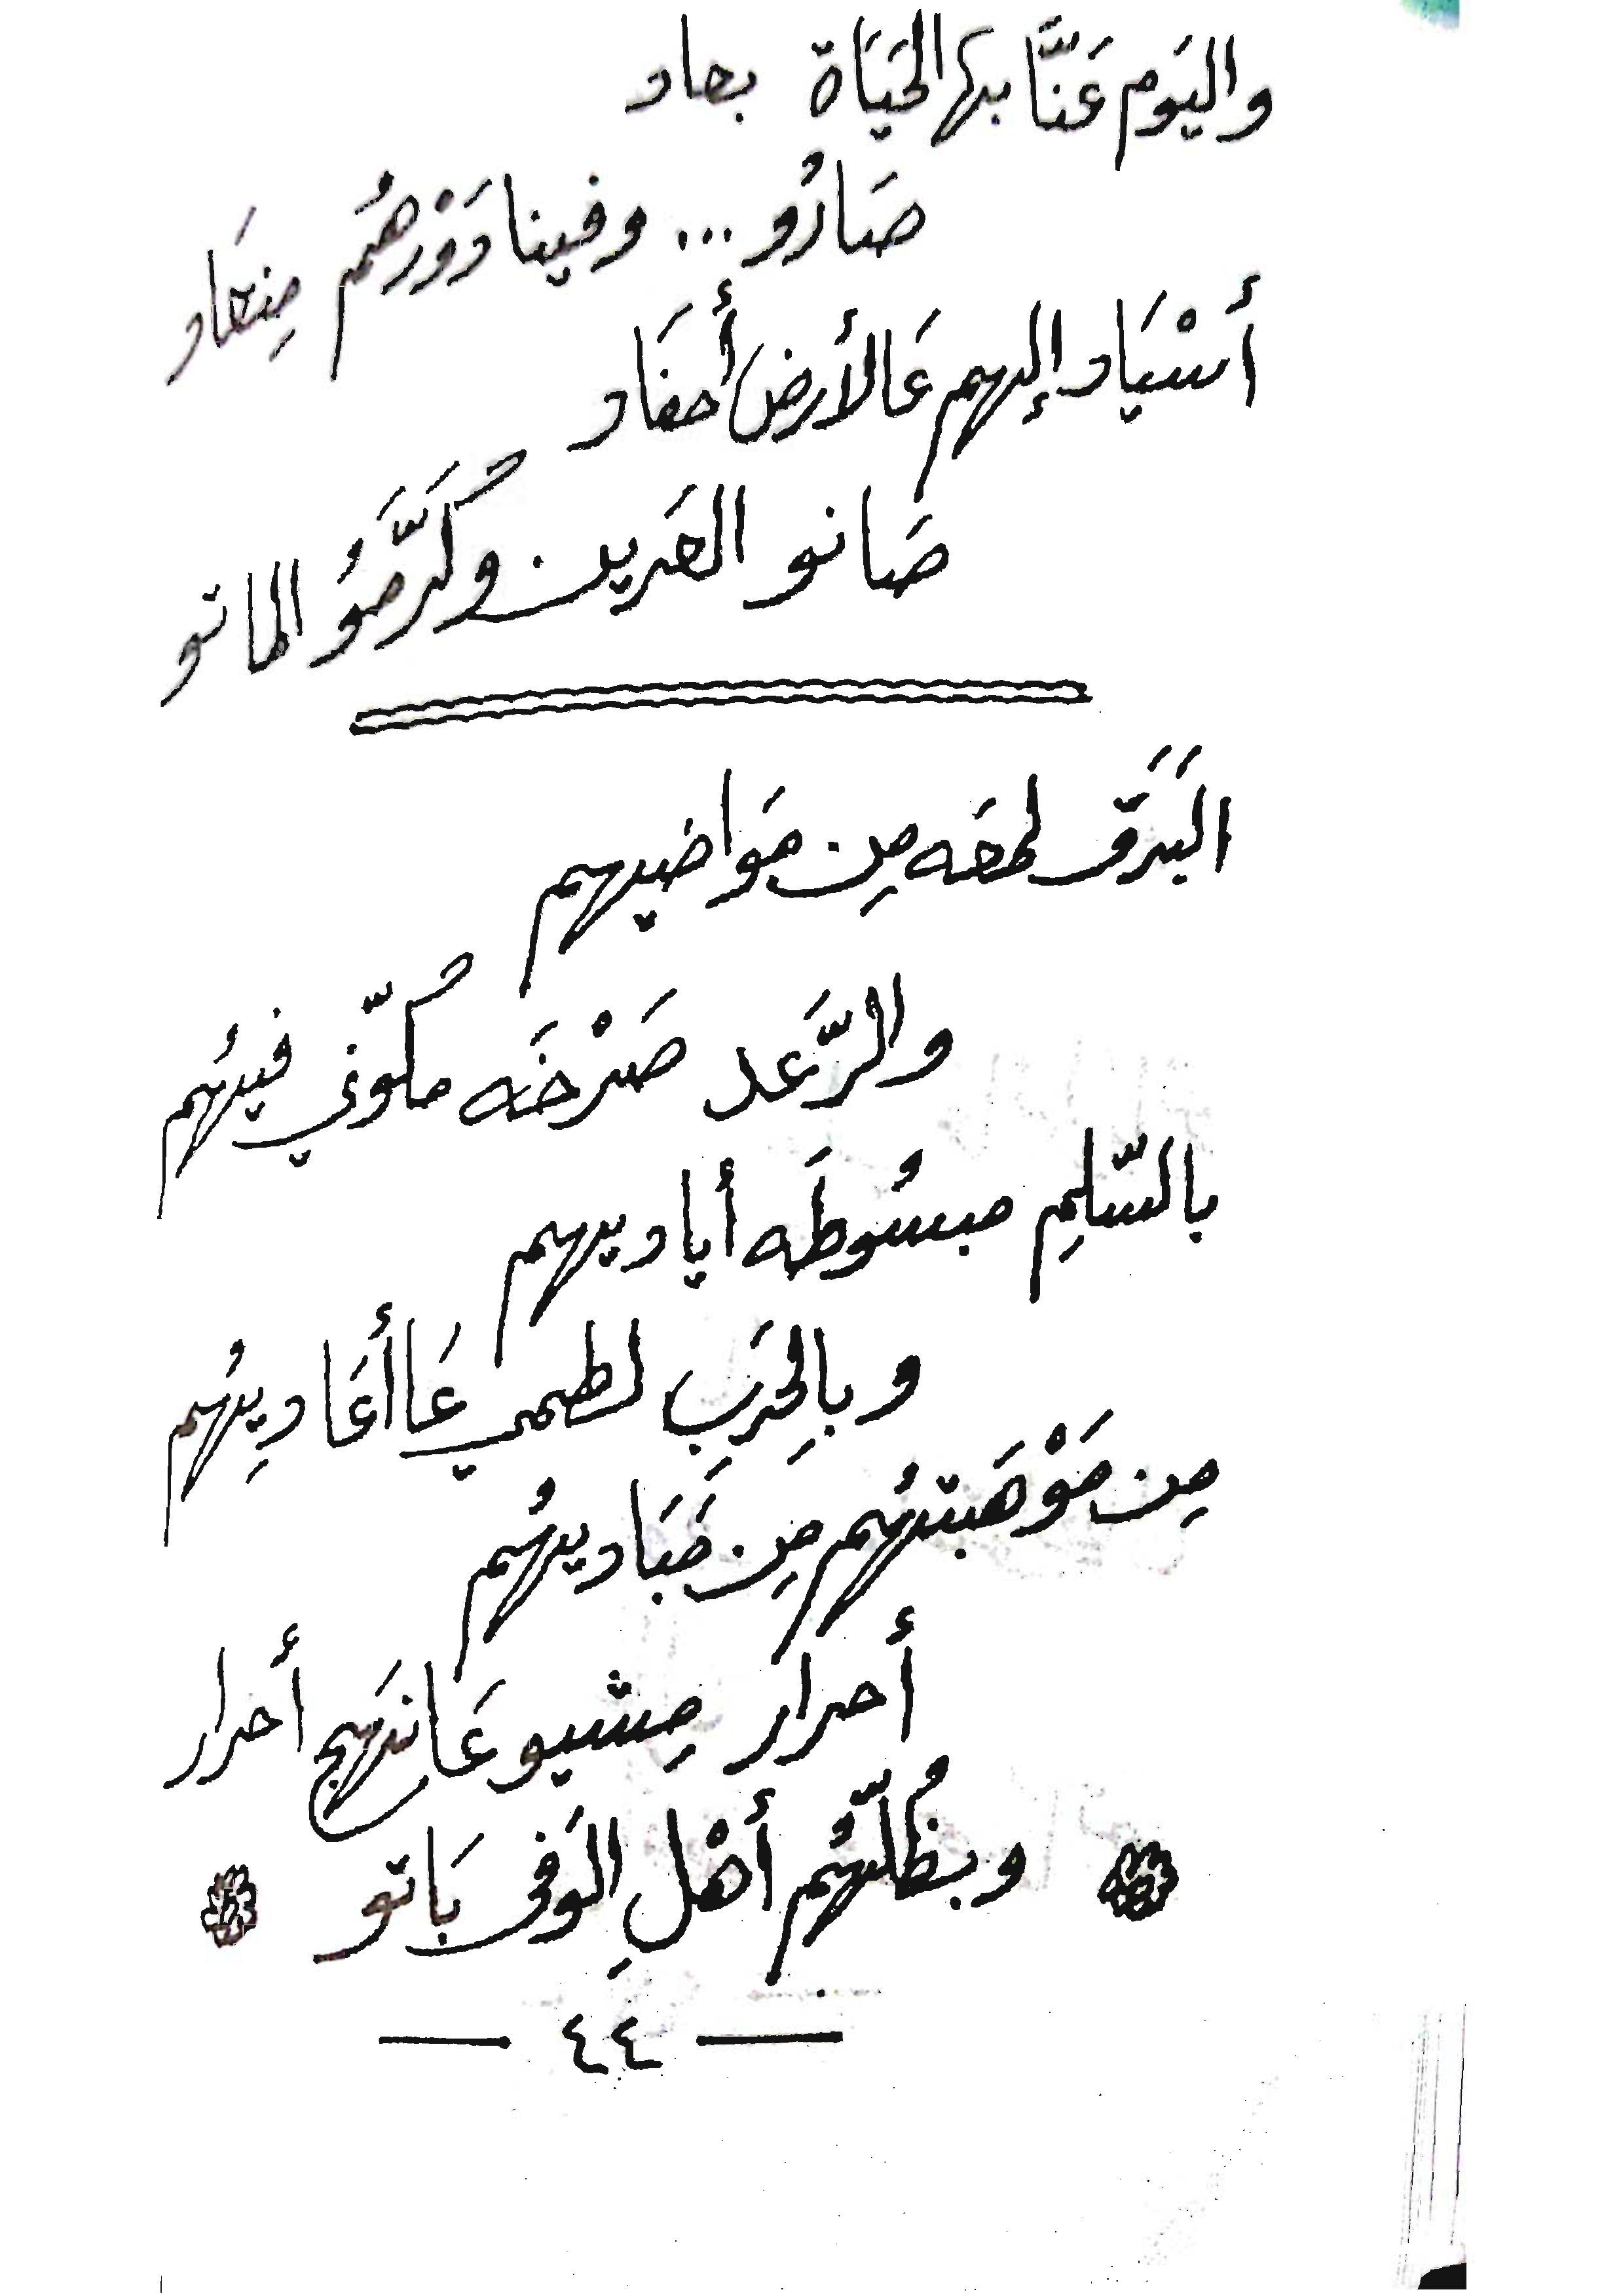 واليَوم عَنَّا بهالحَيَاة بعاد
صَارُو ... وفينا دَوْرهُم مِنعَاد
أَسْيَاد إلهم عَالأرض أَحفَاد
صَانو العَرين وكَرَّمُو الماتو
البَرَق لمحَه مِن مَواضيهم
والرَّعد صَرْخَه مكوّني فيهُم
بالسّلِم مبسُوطَه أياديهم
وبِالحَرِب لطمي عَاأعَاديِهُم
مِن مَوْهَبتهُم مِن مَبَاديهُم
أحرار مِشيو عَانَهج أحرار
وبظُلّهُم أهْلِ الوَفى بَاتو
— ٤٤ —